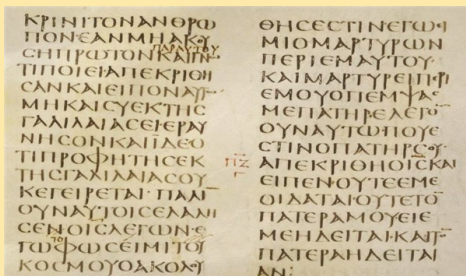 ΚΡΙΝΙΤΟΝΑΝΘΡΩ
ΠΟΝΕΑΝΜΗΑΚΟΥ
ΠΑΡΑΥΤΟΥ
ϹΗΠΡΩΤΟΝΚΑΙΓΝΩ
ΤΙΠΟΙΕΙΑΠΕΚΡΙΘΗ
ϹΑΝΚΑΙΕΙΠΟΝΑΥΤΩ
ΜΗΚΑΙϹΥΕΚΤΗϹ
ΓΑΛΙΛΑΙΑϹΕΙΕΡΑΥ
ΝΗϹΟΝΚΑΙΪΔΕΟ
ΤΙΠΡΟΦΗΤΗϹΕΚ
ΤΗϹΓΑΛΙΛΑΙΑϹΟΥ
ΚΕΓΕΙΡΕΤΑΙ·ΠΑΛΙ
ΟΥΝΑΥΤΟΙϹΕΛΑΛΙ
ϹΕΝΟΙϹΛΕΓΩΝ·Ε
ΤΟ
ΓΩΦΩϹΕΙΜΙΤΟΥ
ΚΟϹΜΟΥΟΑΚΟΛΟΥ
ΘΗϹΕϹΤΙΝΕΓΩΕΙ
ΜΙΟΜΑΡΤΥΡΩΝ
ΠΕΡΙΕΜΑΥΤΟΥ·
ΚΑΙΜΑΡΤΥΡΕΙΠΕΡΙ
ΕΜΟΥΟΠΕΜΨΑϹ
ΜΕΠΑΤΗΡΕΛΕΓΟ
ΟΥΝΑΥΤΩΠΟΥΕ
ϹΤΙΝΟΠΑΤΗΡϹΟΥ·
ΑΠΕΚΡΙΘΗΟΙϹΚΑΙ
ΕΙΠΕΝΟΥΤΕΕΜΕ
ΟΙΔΑΤΑΙΟΥΤΕΤΟ
ΠΑΤΕΡΑΜΟΥΕΙΕ
ΜΕΗΔΕΙΤΑΙ·ΚΑΙΤΟ
ΠΑΤΕΡΑΗΔΕΙΤΑΙ
ΑΝ: